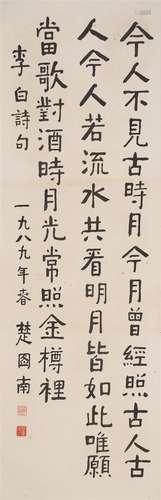 今人不見古時月今月曾經照古人古
人今人若流水共看明月皆如此唯願
當歌對酒時月光常照金樽裡
李白詩句 一九八九年春 楚圖南